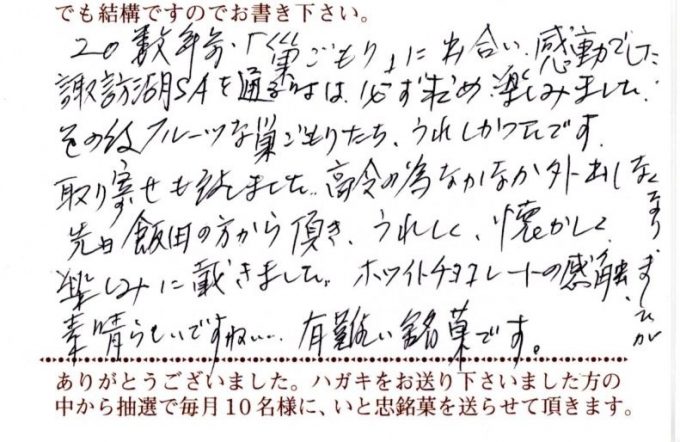 でも結構ですのでお書き下さい。
20数年前・「巣ごもり」に出合い、感動でした
諏訪湖SAを通る時は、必ず求め、楽しみました。
その後フルーツな巣ごもりたち、うれしかったです。
取り寄せも致しました。高令の為なかなか外出しなくなりましたが
先日飯田の方から頂き、うれしく、懐かしく
楽しみに戴きました。ホワイトチョコレートの感触、
素晴らしいですね…. 有難い銘菓です。
ありがとうございました。ハガキをお送り下さいました方の
中から抽選で毎月10名様に、いと忠銘菓を送らせて頂きます。